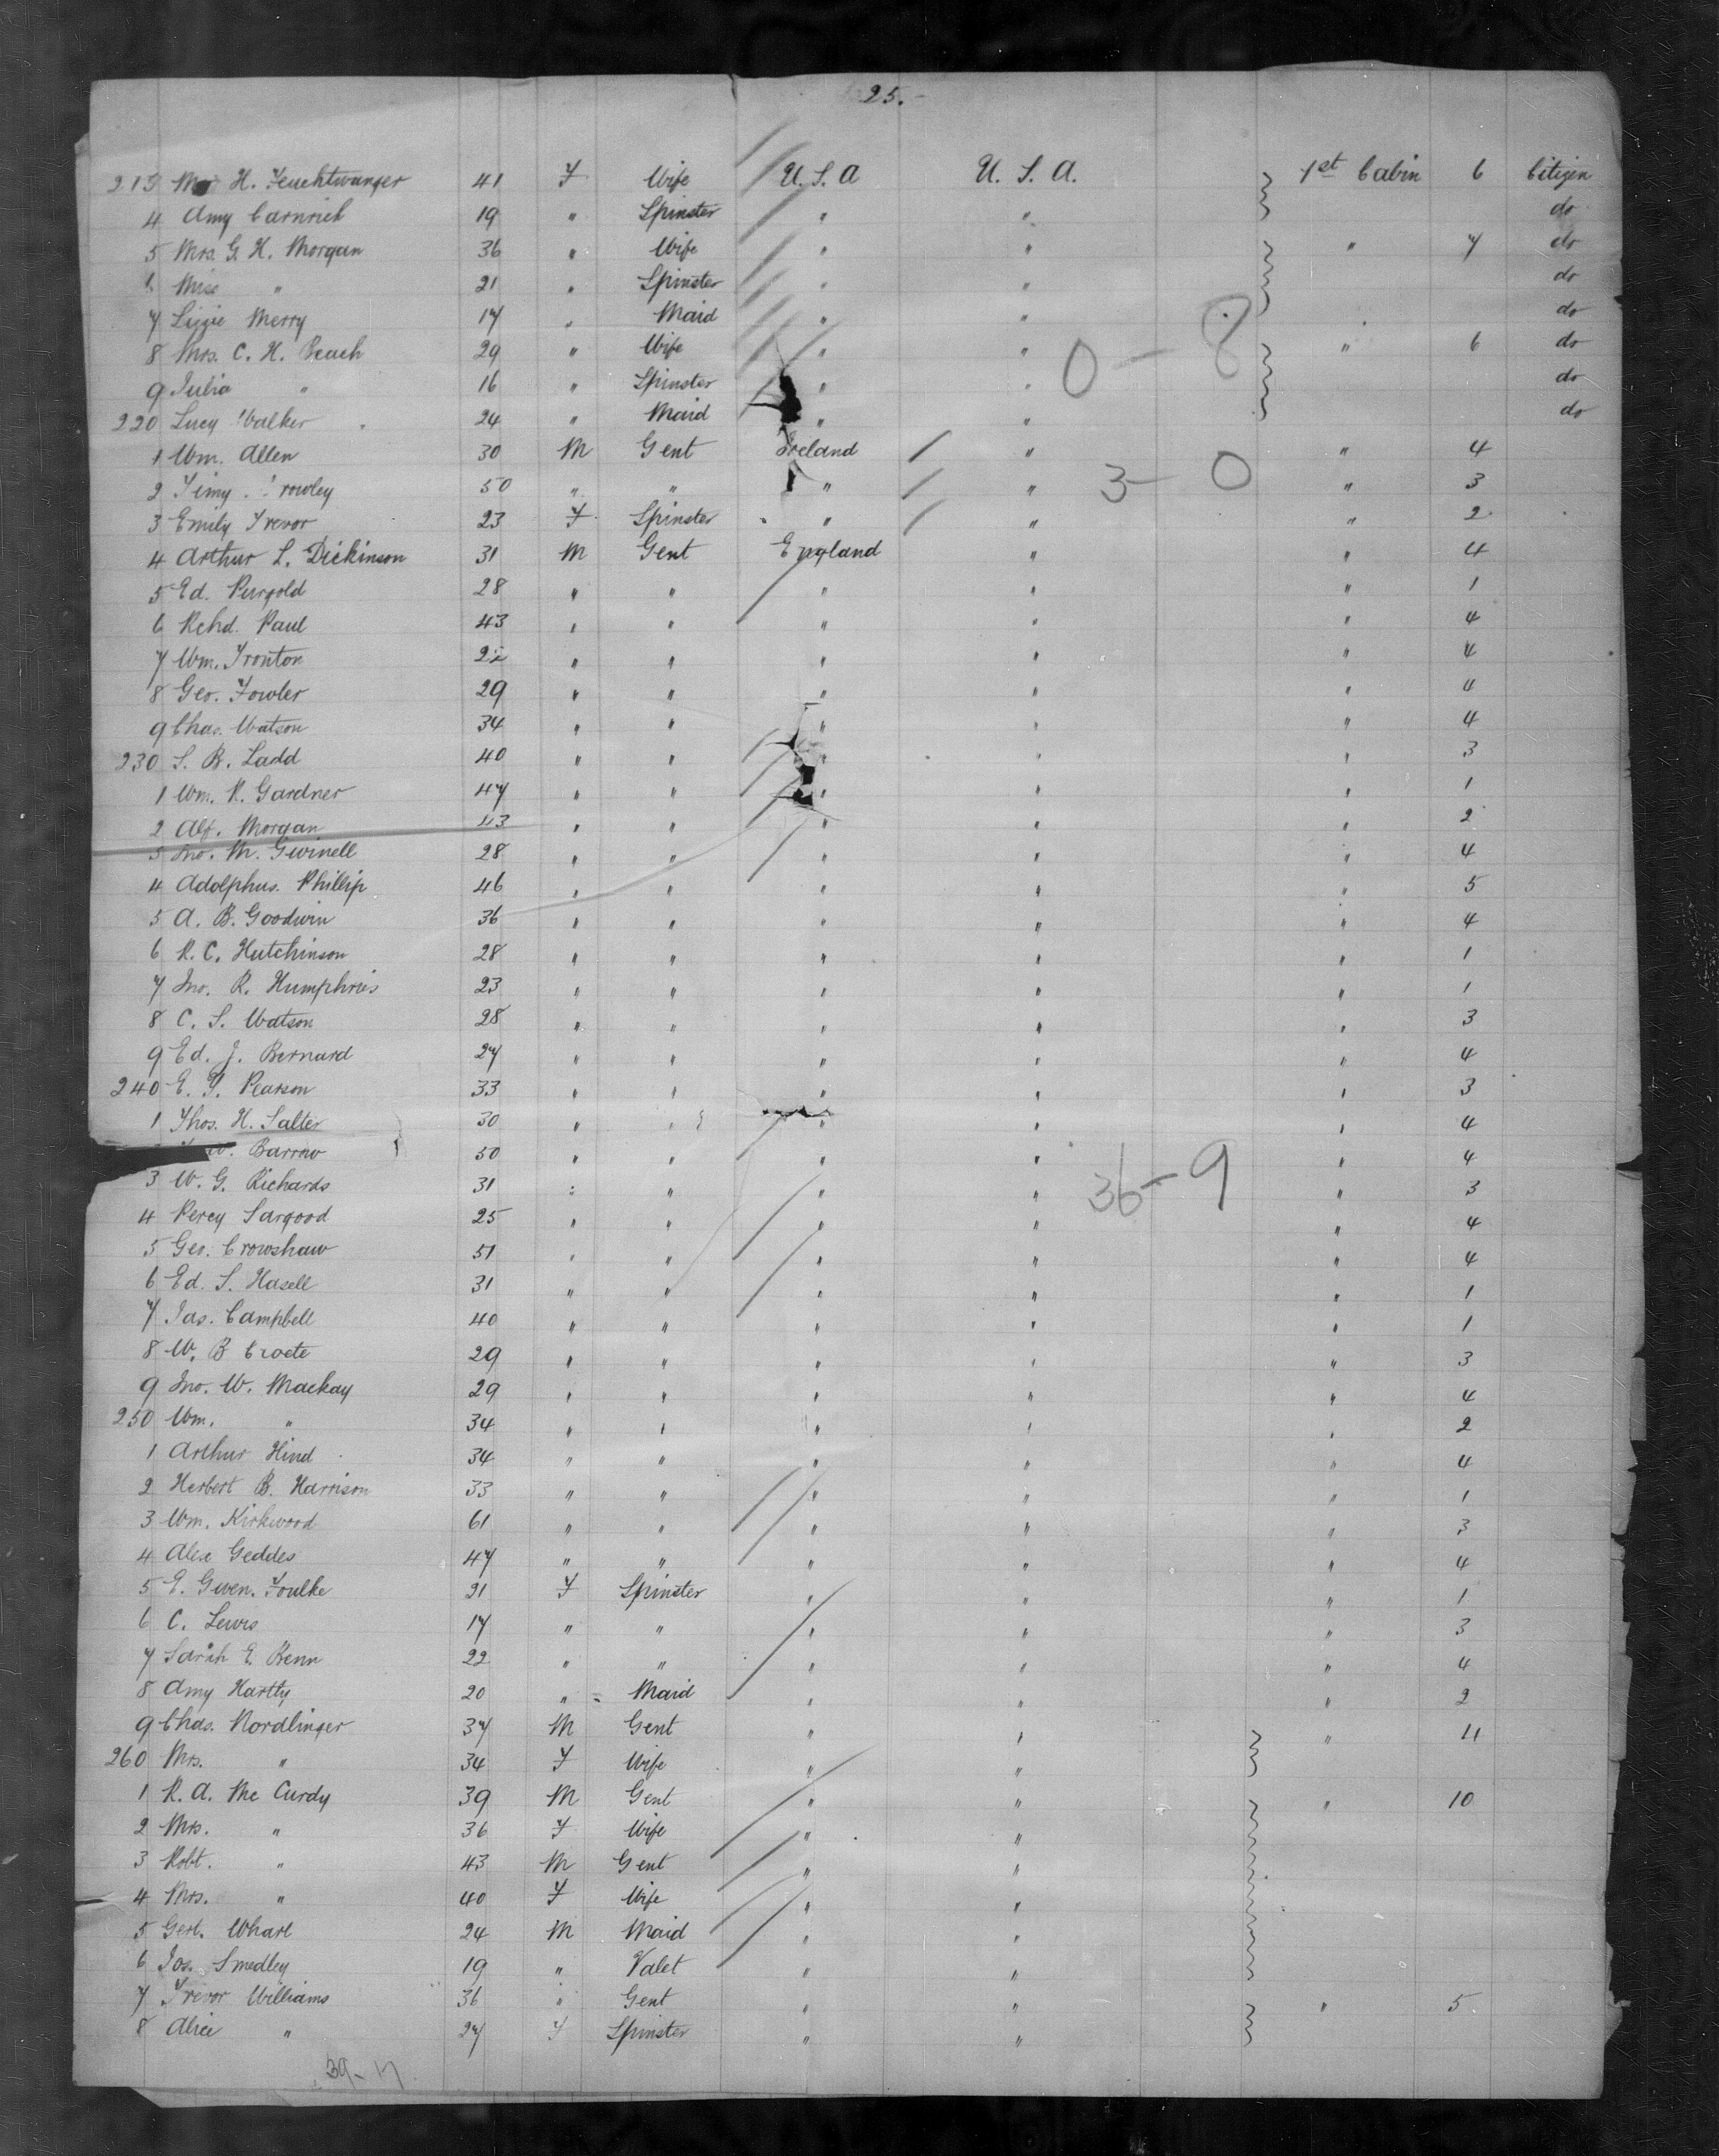 25.
213 Mrs H. Feuchtwanger 41 F Wife U.S.A U.S.A. 1st Cabin 6 Citizen
4 Amy Carnrick 19 " Spinster " " do
5 Mrs. G. H. Morgan 36 " Wife " " " 7 do
6 Miss " 21 " Spinster " " do
7 Lizzie Merry 17 " Maid " " do
8 Mrs. C. H. Peach 29 " Wife " " " 6 do
0 - 8
9 Julia " 16 " Spinster " " do
220 Lucy Walker 24 " Maid " " do
1 Wm. Allen 30 M Gent Ireland " " 4
3 - 0
2 Timy rowley 50 " " " " " 3
3 Emily Trevor 23 F Spinster " " " 2
4 Arthur L. Dickinson 31 M Gent England " " 4
5 Ed. Purgold 28 " " " " " 1
6 Rchd. Paul 43 " " " " " 4
7 Wm. Tronton " " " " " 4
8 Geo. Fowler 29 " " " " " 4
9 Chas. Watson 34 " " " " " 4
230 S. B. Ladd 40 " " " " " 3
1 Wm. R. Gardner 47 " " " " " 1
2 Alf. Morgan 43 " " " " " 2
3 Jno. M. Gwinell 28 " " " " " 4
4 Adolphus. Phillip 46 " " " " " 5
5 A. B. Goodwin 36 " " " " " 4
6 R. C. Hutchinson 28 " " " " " 1
7 Jno. R. Humphries 23 " " " " " 1
8 C. S. Watson 28 " " " " " 3
9 Ed. J. Bernard 27 " " " " " 4
240 E. Y. Pearson 33 " " " " " 3
1 Thos. H. Salter 30 " " " " " 4
W. Barrow 50 " " " " " 4
36 - 9
3 W. G. Richards 31 " " " " " 3
4 Percy Sargood 25 " " " " " 4
5 Geo. Crowshaw 51 " " " " " 4
6 Ed. S. Hasell 31 " " " " " 1
7 Jas. Campbell 40 " " " " " 1
8 W. B 29 " " " " " 3
9 Jno. W. Mackay 29 " " " " " 4
250 Wm. " 34 " " " " " 2
1 Arthur Hind 34 " " " " " 4
2 Herbert B. Harrison 33 " " " " " 1
3 Wm. Kirkwood 61 " " " " " 3
4 Alex Geddes 47 " " " " " 4
5 E. Gwen. Foulke 21 F Spinster " " " 1
6 C. Lewis 17 " " " " " 3
7 Sarah E. Benn 22 " " " " " 4
8 Amy Hartly 20 " Maid " " " 2
9 Chas. Nordlinger 37 M Gent " " " 11
260 Mrs. " 34 F Wife " "
1 R. A. Mc Curdy 39 M Gent " " " 10
2 Mrs. " 36 F Wife " "
3 Robt. " 43 M Gent " "
4 Mrs. " 40 F Wife " "
5 Gert. 24 M Maid " "
6 Jos. Smedley 19 " Valet " "
7 Trevor Williams 36 " Gent " " " 5
8 Alice " 27 F Spinster " "
39 - 17